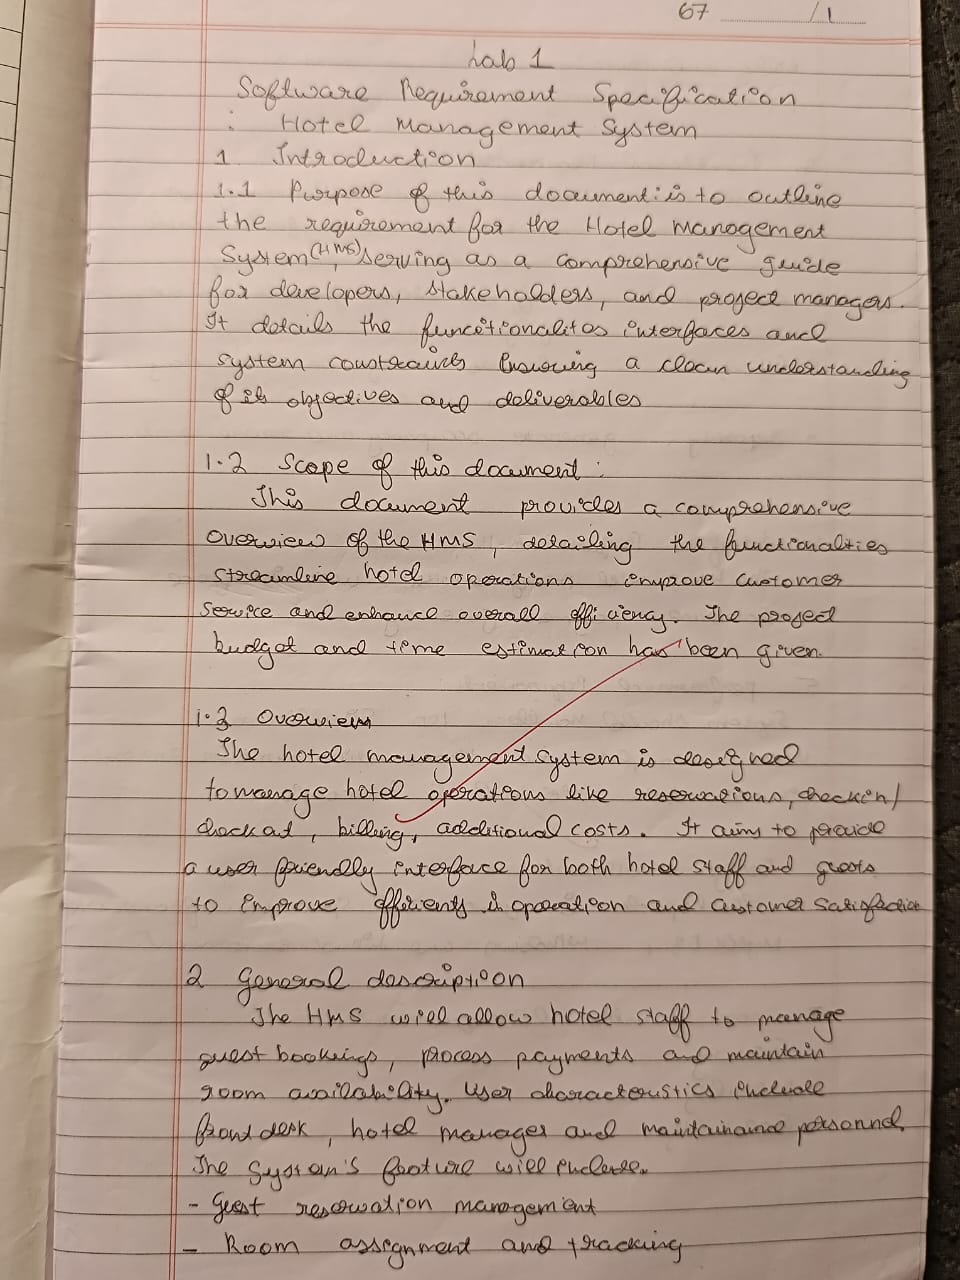 67 /1
Lab 1
Software Requirement Specification
: Hotel Management System
1. Introduction
1.1 Purpose of this document: is to outline
the requirement for the Hotel Management
System (HMS), serving as a comprehensive guide
for developers, stakeholders, and project managers.
It details the functionalites interfaces and
system constraints Ensuring a clear understanding
of its objectives and deliverables
1.2 Scope of this document:
This document provides a comprehensive
overview of the HMS, detailing the functionalities
streamline hotel operations improve customer
service and enhance overall efficiency. The project
budget and time estimation has been given.
1.3 Overview
The hotel management system is designed
to manage hotel operations like reservations, checkin/
checkout, billing, additional costs. It aims to provide
a user friendly interface for both hotel staff and guests
to improve efficiency in operation and customer satisfaction
2 General description
The HMS will allow hotel staff to manage
guest bookings, process payments and maintain
room availability. User characteristics include
front desk, hotel manager and maintainance personnel.
The System's feature will include.
- Guest reservation management
- Room assignment and tracking